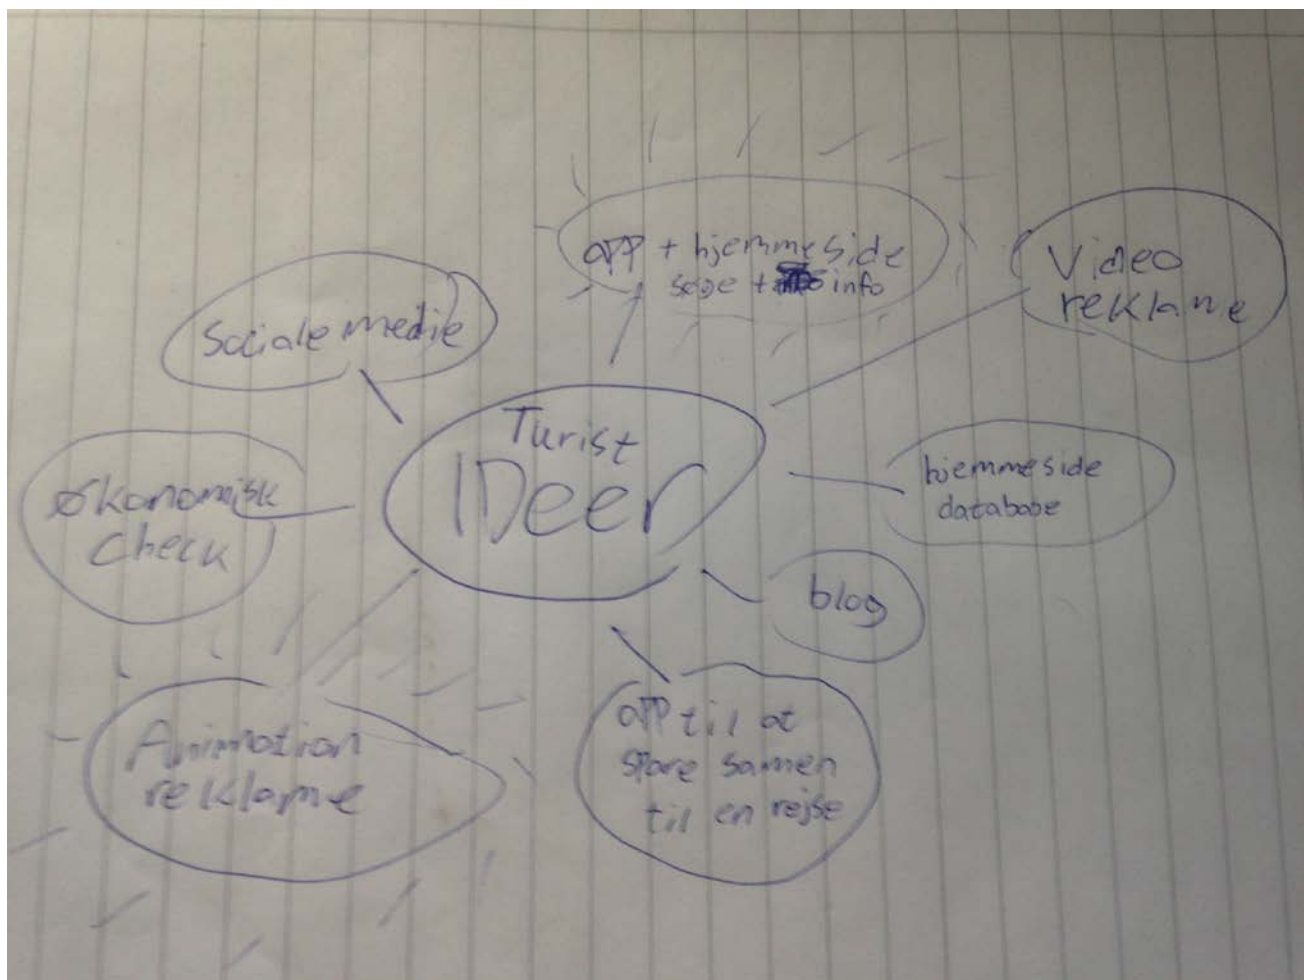 APP + hjemmeside
søge + info
Video
reklame
Sociale medie
Turist
IDeer
hjemmeside
database
økonomisk
check
blog
Animation
reklame
APP til at
spare samen
til en rejse